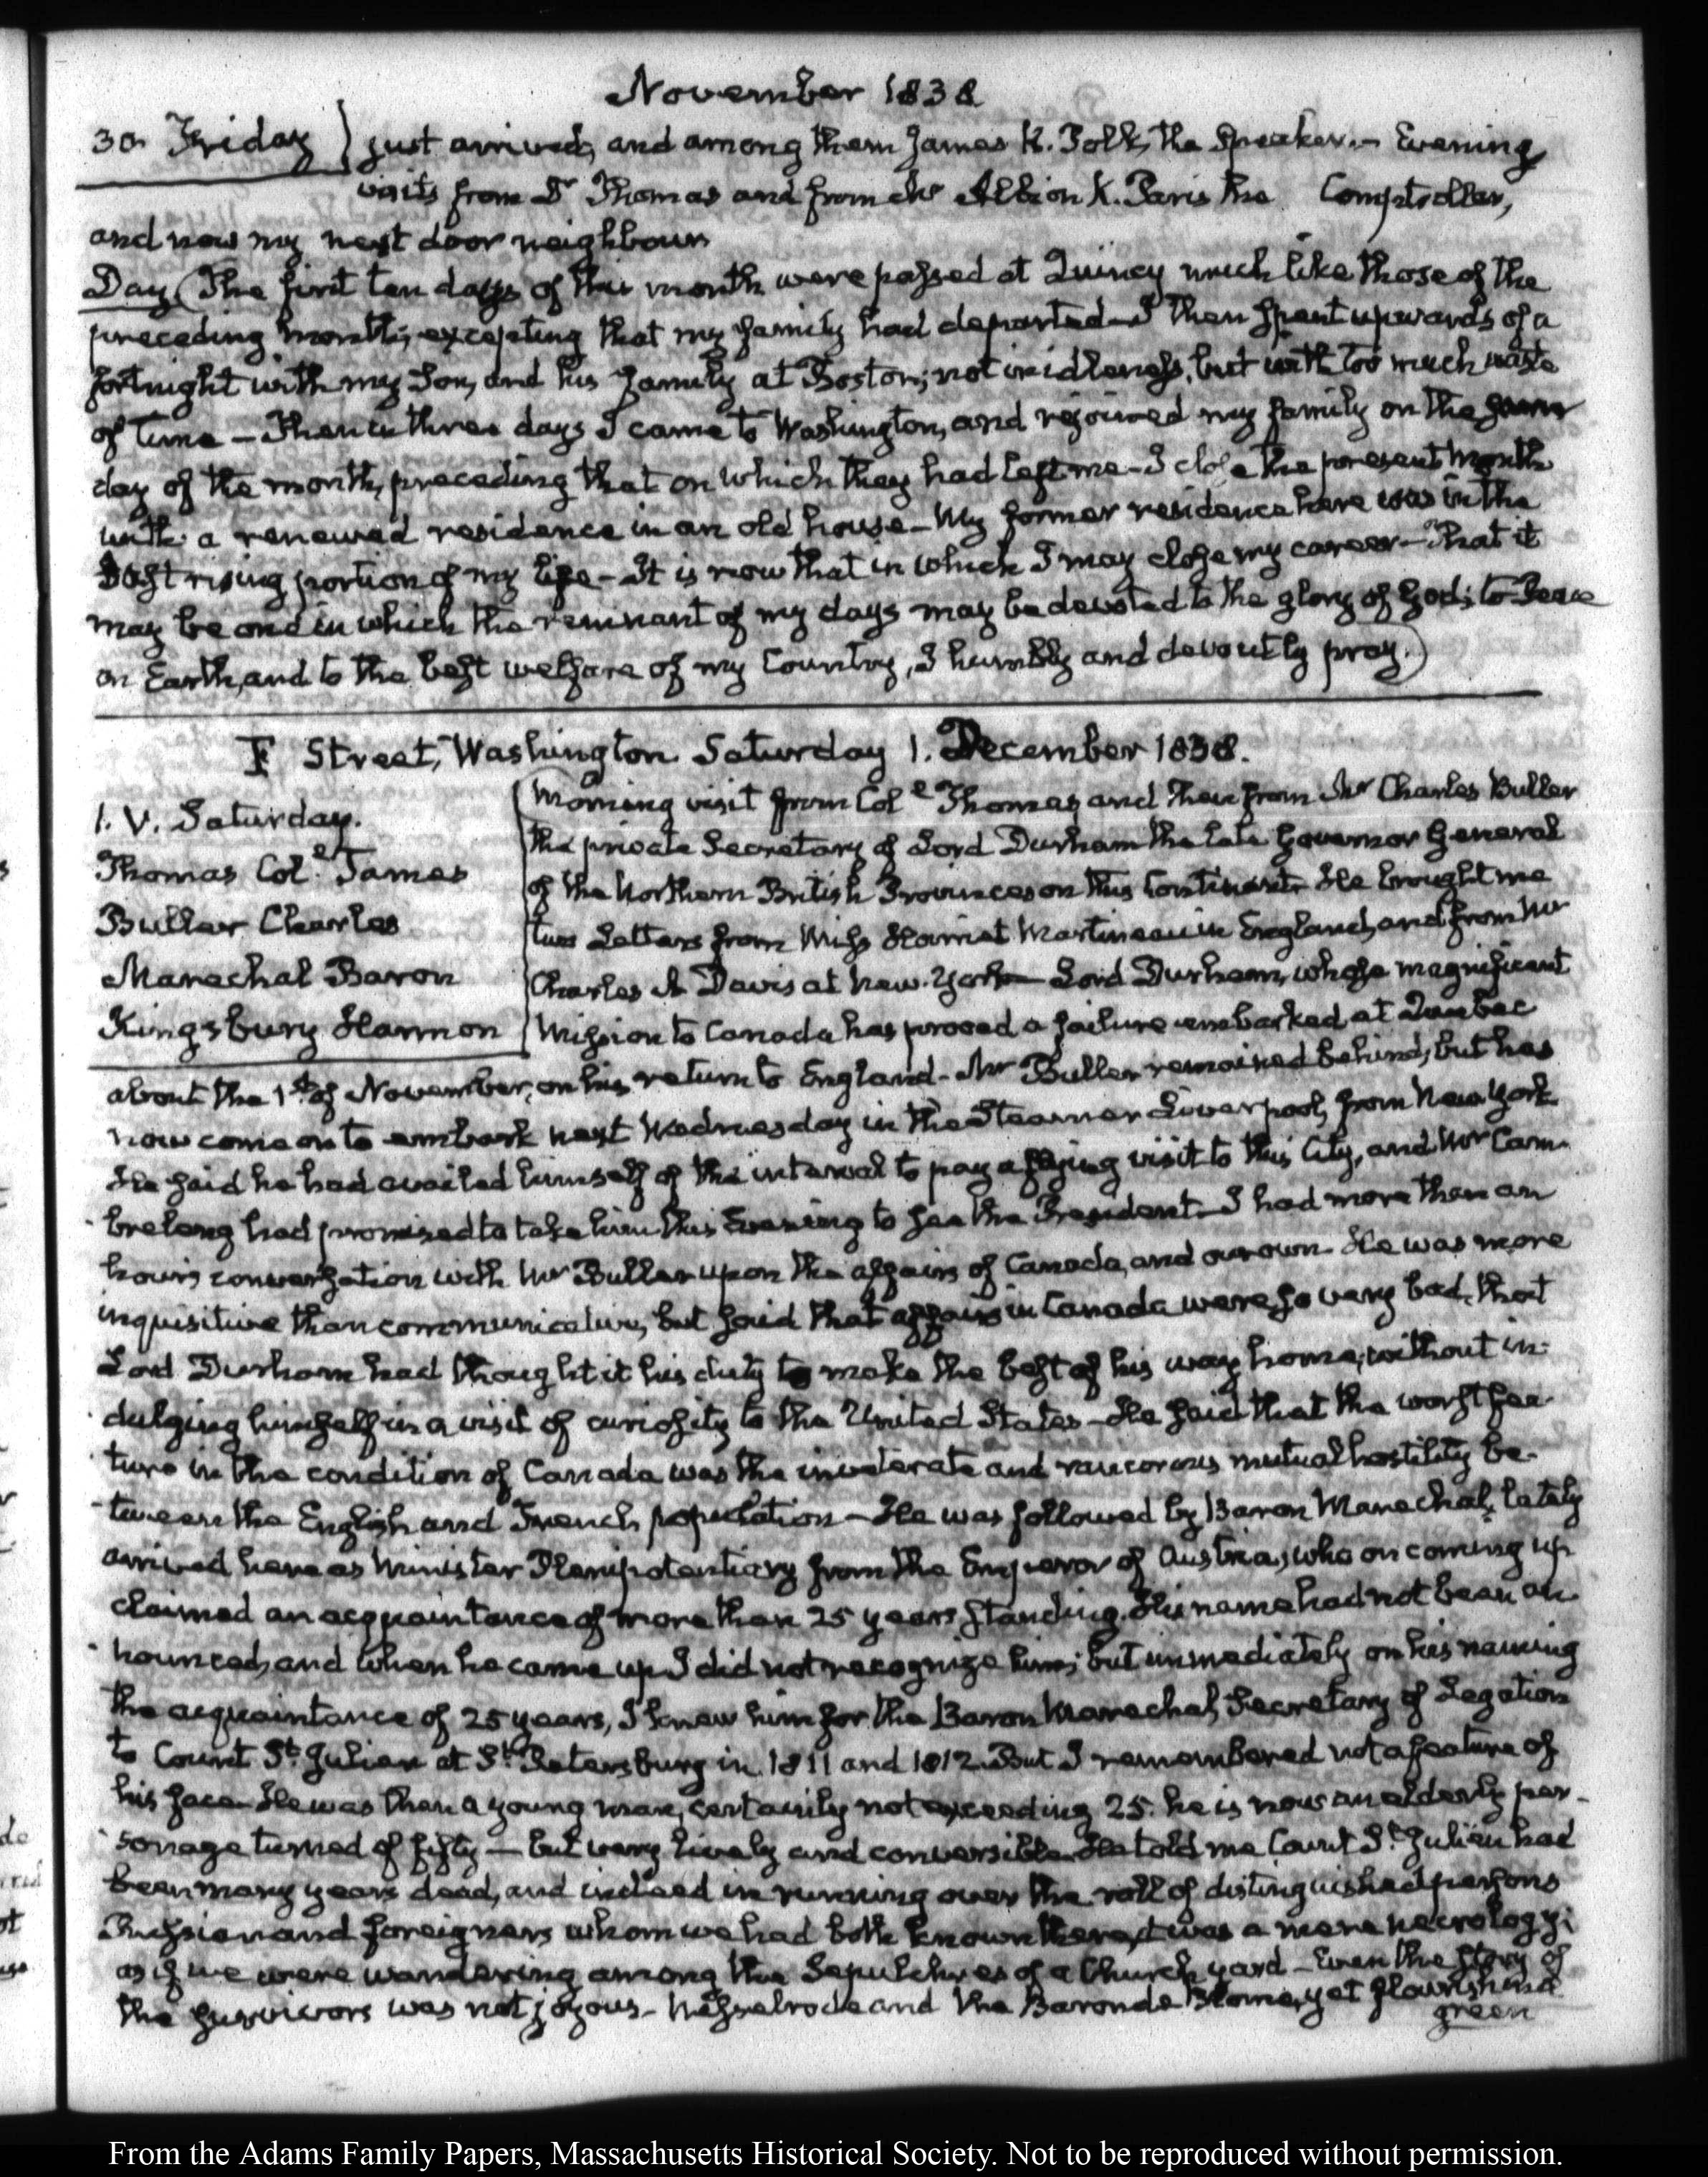 November 1838
30. Friday just arrived, and among them James K. Polk, the Speaker. — Evening
visits from Dr Thomas and from Mr Albion K. Paris the Comptroller,
and now my next door neighbour
Day (The first ten days of this month were passed at Quincy much like those of the
preceding month; excepting that my family had departed — I then spent upwards of a
fortnight with my Son, and his family at Boston; not in idleness, but with too much waste
of time — Then in three days I came to Washington, and rejoined my family on the same
day of the month, preceding that on which they had left me — I close the present Month
with a renewed residence in an old house — My former residence here was in the
last rising portion of my life — It is now that in which I may close my career — That it
may be one in which the remnant of my days may be devoted to the glory of God; to Peace
on Earth, and to the best welfare of my Country, I humbly and devoutly pray.)
F Street, Washington Saturday 1. December 1838.
1. V. Saturday.
Thomas Col. James
Buller Charles
Marechal Baron
Kingsbury Harmon
Morning visit from Col Thomas, and then from Mr Charles Buller
the private Secretary of Lord Durham the late Governor General
of the Northern British Provinces on this Continent. He brought me
two Letters from Miss Harriet Martineau in England, and from Mr
Charles A Davis at New-York — Lord Durham, whose magnificent
Mission to Canada has proved a failure embarked at Quebec
about the 1st of November, on his return to England — Mr Buller remained behind, but has
now come on to embark next Wednesday in the Steamer Liverpool, from New York
He said he had availed himself of the interval to pay a flying visit to this City, and Mr Cam-
breleng had promised to take him this Evening to see the President. I had more than an
hour's conversation with Mr Buller upon the affairs of Canada, and our own. He was more
inquisitive than communicative, but said that affairs in Canada were so very bad, that
Lord Durham had thought it his duty to make the best of his way home, without in-
dulging himself in a visit of curiosity to the United States — He said that the worst fea-
ture in the condition of Canada was the inveterate and rancorous mutual hostility be-
tween the English and French population — He was followed by Baron Marechal, lately
arrived here as Minister Plenipotentiary from the Emperor of Austria, who on coming up
claimed an acquaintance of more than 25 years standing. His name had not been an-
nounced, and when he came up I did not recognize him; but immediately on his naming
the acquaintance of 25 years, I knew him for the Baron Marechal, Secretary of Legation
to Count St. Julien at St. Petersburg in 1811 and 1812. But I remembered not a feature of
his face — He was then a young man, certainly not exceeding 25. he is now an elderly per-
sonage turned of fifty — but very lively and conversible. He told me Count St. Julien had
been many years dead, and indeed in running over the roll of distinguished persons
Russian and foreigners whom we had both known there, it was a mere necrology;
as if we were wandering among the Sepulchres of a Church yard — Even the story of
the survivors was not joyous — Nesselrode and the Baron de Blome, yet flourishing
green
From the Adams Family Papers, Massachusetts Historical Society. Not to be reproduced without permission.